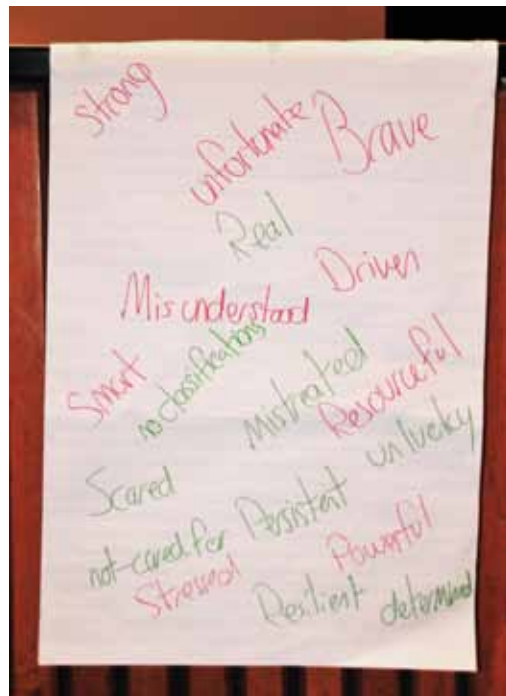 Strong
unfortunate
Brave
Real
Driven
Misunderstood
no classifications
Smart
Mistreated
Resourceful
unlucky
Scared
Persistent
not-cared for
Powerful
Stressed
Resilient
determined